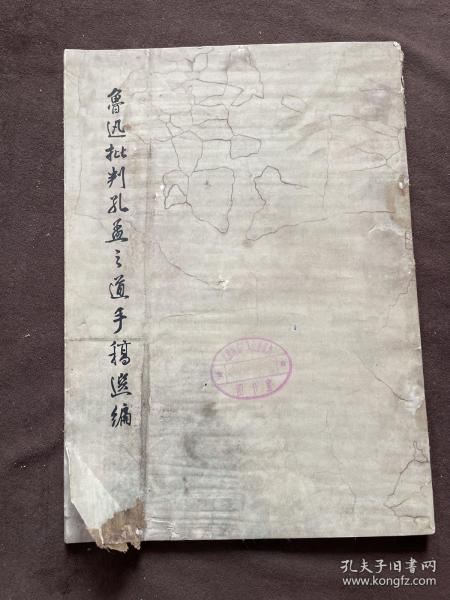 鲁迅批判孔孟之道手稿选编
图书室
孔夫子旧书网
www.kongfz.com